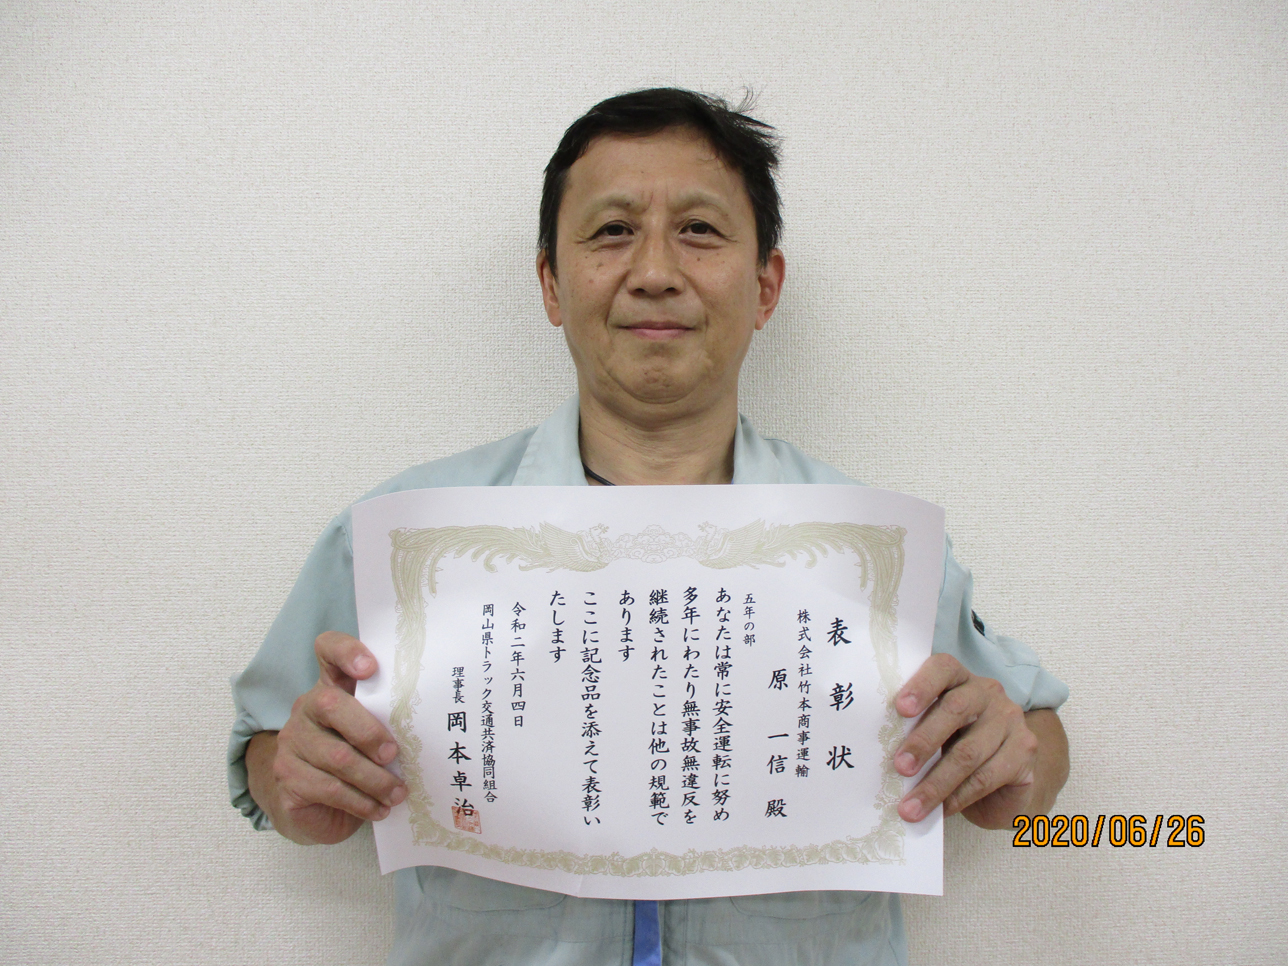 表彰状
株式会社竹本商事運輸
原一信殿
五年の部
あなたは常に安全運転に努め
多年にわたり無事故無違反を
継続されたことは他の規範で
あります
ここに記念品を添えて表彰い
たします
令和二年六月四日
岡山県トラック交通共済協同組合
理事長 岡本卓治
2020/06/26